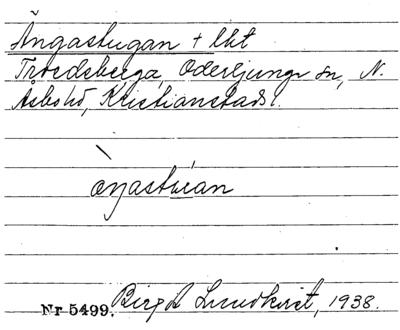 Ängastugan † lht
Troedsberga, Oderljunga sn, N.
Åsbo hd, Kristianstads l.
Nr 5499. Birgit Lundkvist, 1938.